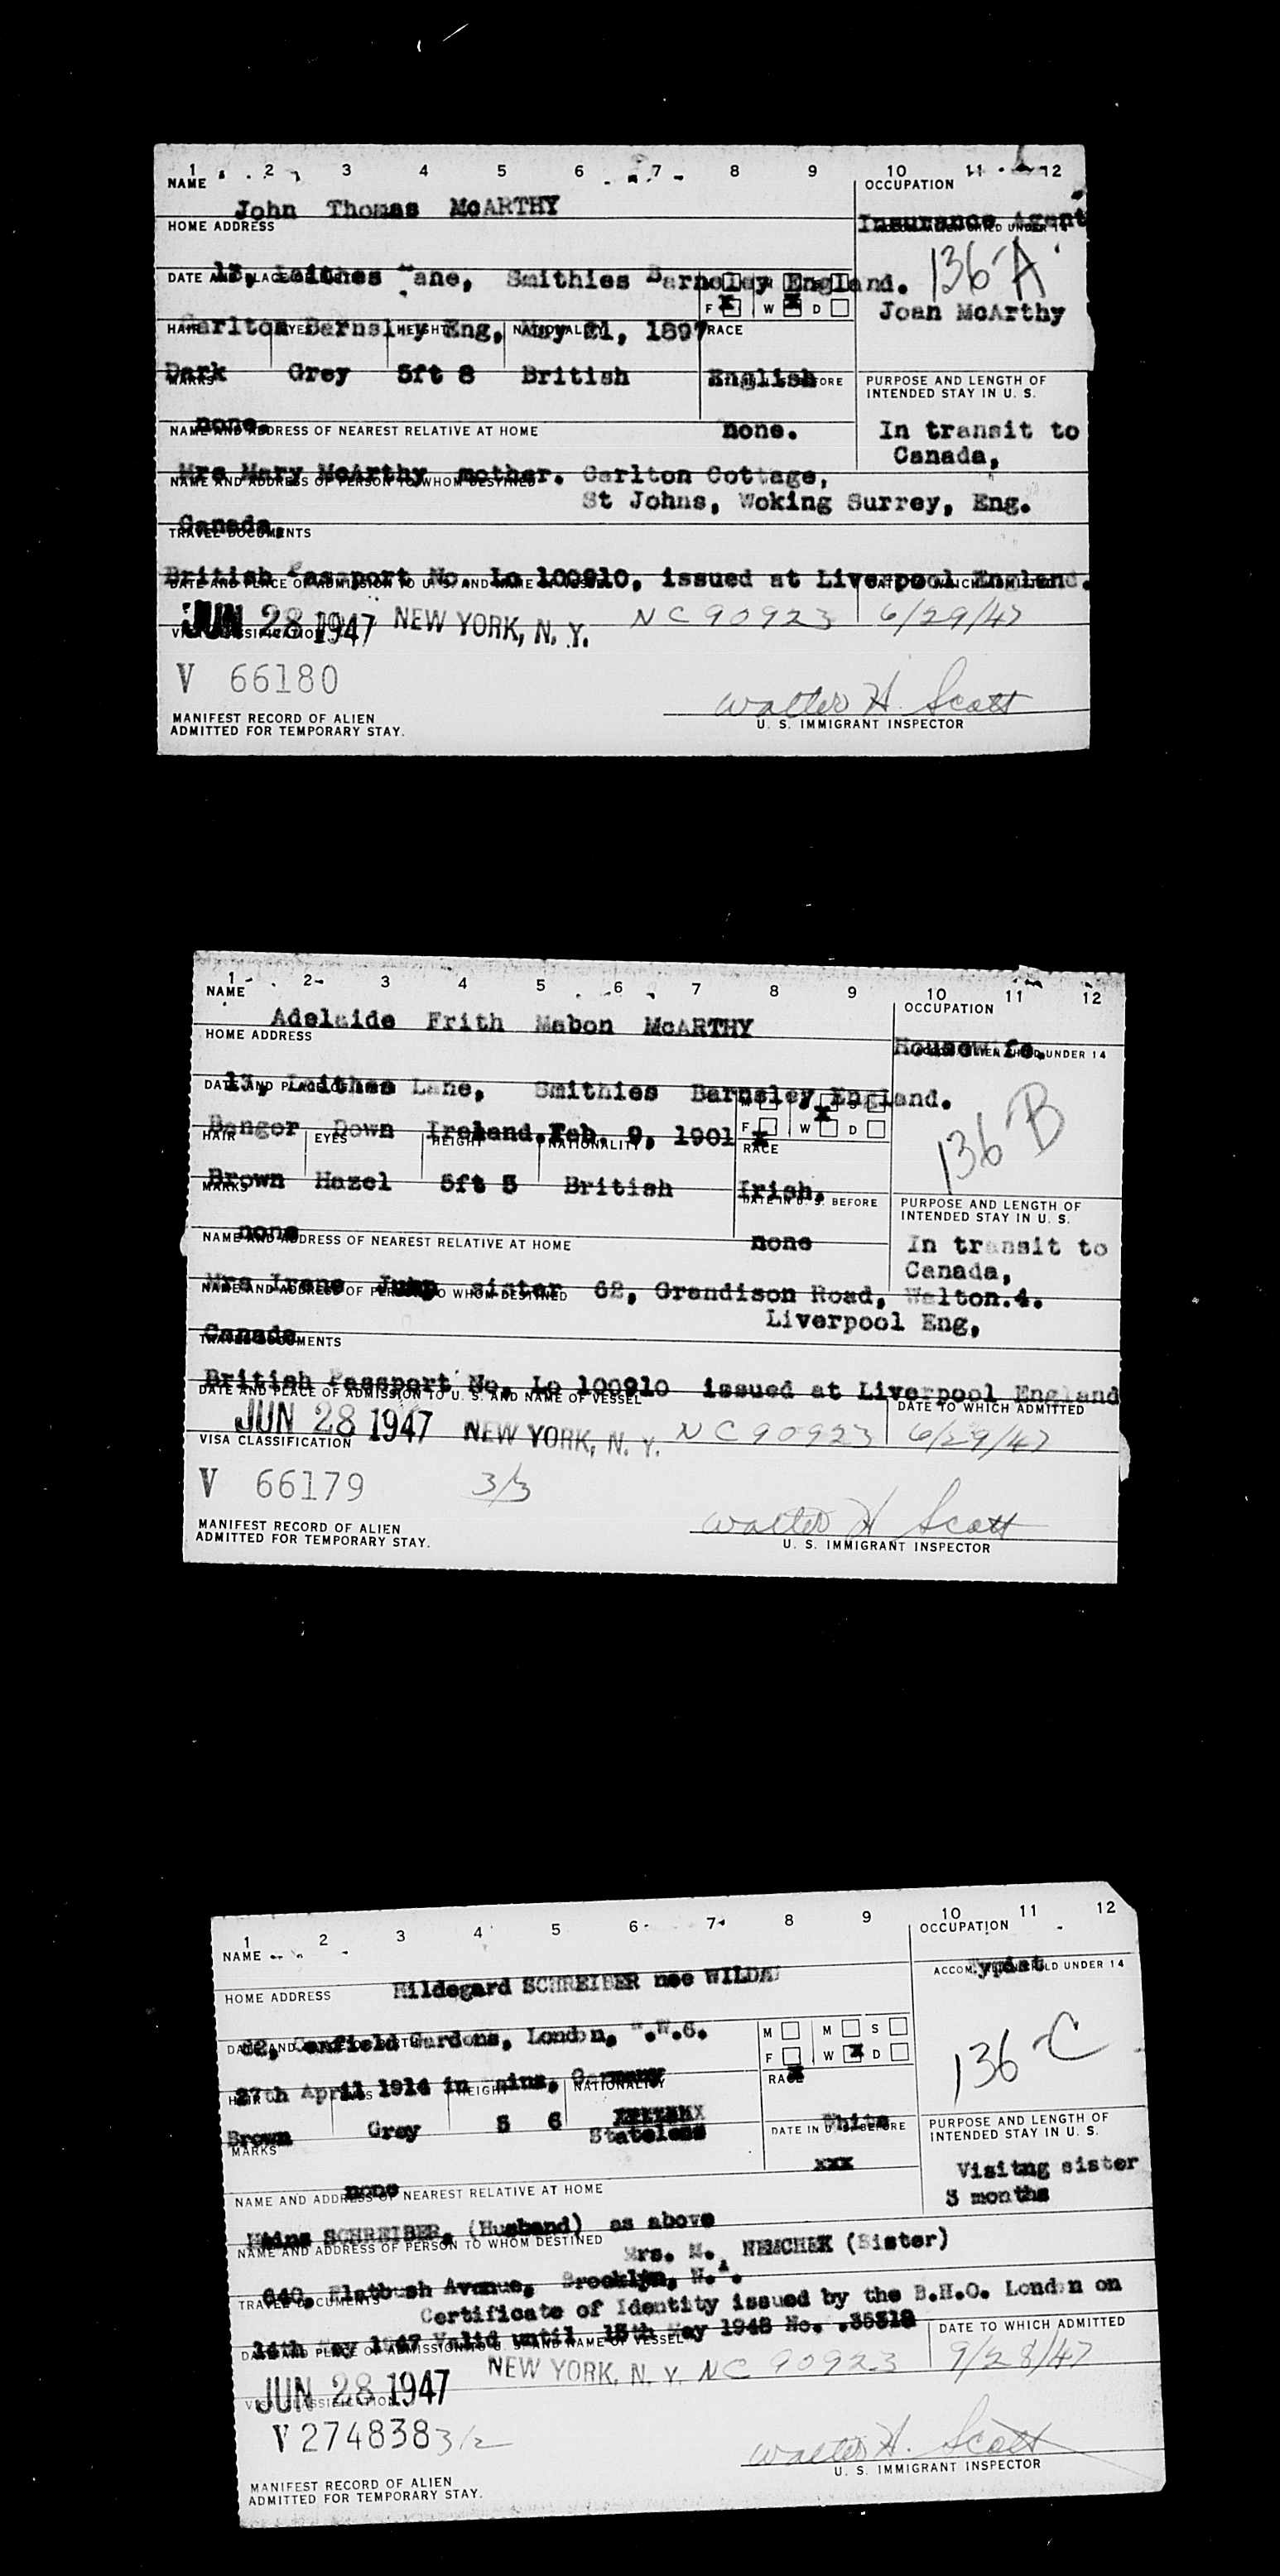 1 2 3 4 5 6 7 8 9 10 11 12
NAME OCCUPATION
John Thomas McARTHY Insurance Agent
HOME ADDRESS UNDER 14
136 A
13, Leithes Lane, Smithies Barnsley England.
DATE AND PLACE
F W D Joan McArthy
Carlton Barnsley Eng, May 21, 1897
HAIR EYES HEIGHT NATIONALITY RACE
Dark Grey 5ft 8 British English
MARKS BEFORE PURPOSE AND LENGTH OF
INTENDED STAY IN U. S.
none. none. In transit to
NAME AND ADDRESS OF NEAREST RELATIVE AT HOME Canada,
Mrs Mary McArthy mother. Carlton Cottage,
NAME AND ADDRESS OF PERSON TO WHOM DESTINED
St Johns, Woking Surrey, Eng.
Canada.
TRAVEL DOCUMENTS
British Passport No. Lo 100910, issued at Liverpool England.
DATE AND PLACE OF ADMISSION TO U. S. AND NAME OF VESSEL DATE TO WHICH ADMITTED
JUN 28 1947 NEW YORK, N. Y. NC 90923 6/29/47
VISA CLASSIFICATION
V 66180
Walter H. Scott
MANIFEST RECORD OF ALIEN
ADMITTED FOR TEMPORARY STAY.
U. S. IMMIGRANT INSPECTOR
1 2 3 4 5 6 7 8 9 10 11 12
NAME OCCUPATION
Adelaide Frith Mabon McARTHY
HOME ADDRESS Housewife. UNDER 14
13, Leithes Lane, Smithies Barnsley England.
DATE AND PLACE
136 B
F W D
Bangor Down Ireland. Feb. 9, 1901
HAIR EYES HEIGHT NATIONALITY RACE
Brown Hazel 5ft 5 British Irish.
MARKS DATE IN U. S. BEFORE PURPOSE AND LENGTH OF
INTENDED STAY IN U. S.
none none In transit to
NAME AND ADDRESS OF NEAREST RELATIVE AT HOME Canada,
Mrs Irene Jump sister 62, Grandison Road, Walton.4.
NAME AND ADDRESS OF PERSON TO WHOM DESTINED
Liverpool Eng,
Canada
TRAVEL DOCUMENTS
British Passport No. Lo 100910 issued at Liverpool England
DATE AND PLACE OF ADMISSION TO U. S. AND NAME OF VESSEL DATE TO WHICH ADMITTED
JUN 28 1947 NEW YORK, N. Y. NC 90923 6/29/47
VISA CLASSIFICATION
V 66179 3/3
Walter H Scott
MANIFEST RECORD OF ALIEN
ADMITTED FOR TEMPORARY STAY.
U. S. IMMIGRANT INSPECTOR
1 2 3 4 5 6 7 8 9 10 11 12
NAME OCCUPATION
Hildegard SCHREIBER nee WILDAU Typist
HOME ADDRESS ACCOM. CHILD UNDER 14
62, Canfield Gardens, London, N.W.6.
M M S
F W D
136 C
27th April 1914 in Mainz, Germany
HAIR HEIGHT NATIONALITY RACE
Brown Grey 5 6 Stateless White
MARKS DATE IN U. S. BEFORE PURPOSE AND LENGTH OF
INTENDED STAY IN U. S.
none xxx Visitng sister
3 months
NAME AND ADDRESS OF NEAREST RELATIVE AT HOME
Heinz SCHREIBER, (Husband) as above
NAME AND ADDRESS OF PERSON TO WHOM DESTINED
Mrs. M. NEMCHEK (Sister)
640, Flatbush Avenue, Brooklyn, N.Y.
TRAVEL DOCUMENTS
Certificate of Identity issued by the B.H.O. London on
14th May 1947 Valid until 13th May 1948 No. .35318
DATE AND PLACE OF ADMISSION TO U. S. AND NAME OF VESSEL DATE TO WHICH ADMITTED
JUN 28 1947 NEW YORK, N. Y. NC 90923 9/28/47
VISA CLASSIFICATION
V 274838 3/2
Walter H. Scott
U. S. IMMIGRANT INSPECTOR
MANIFEST RECORD OF ALIEN
ADMITTED FOR TEMPORARY STAY.